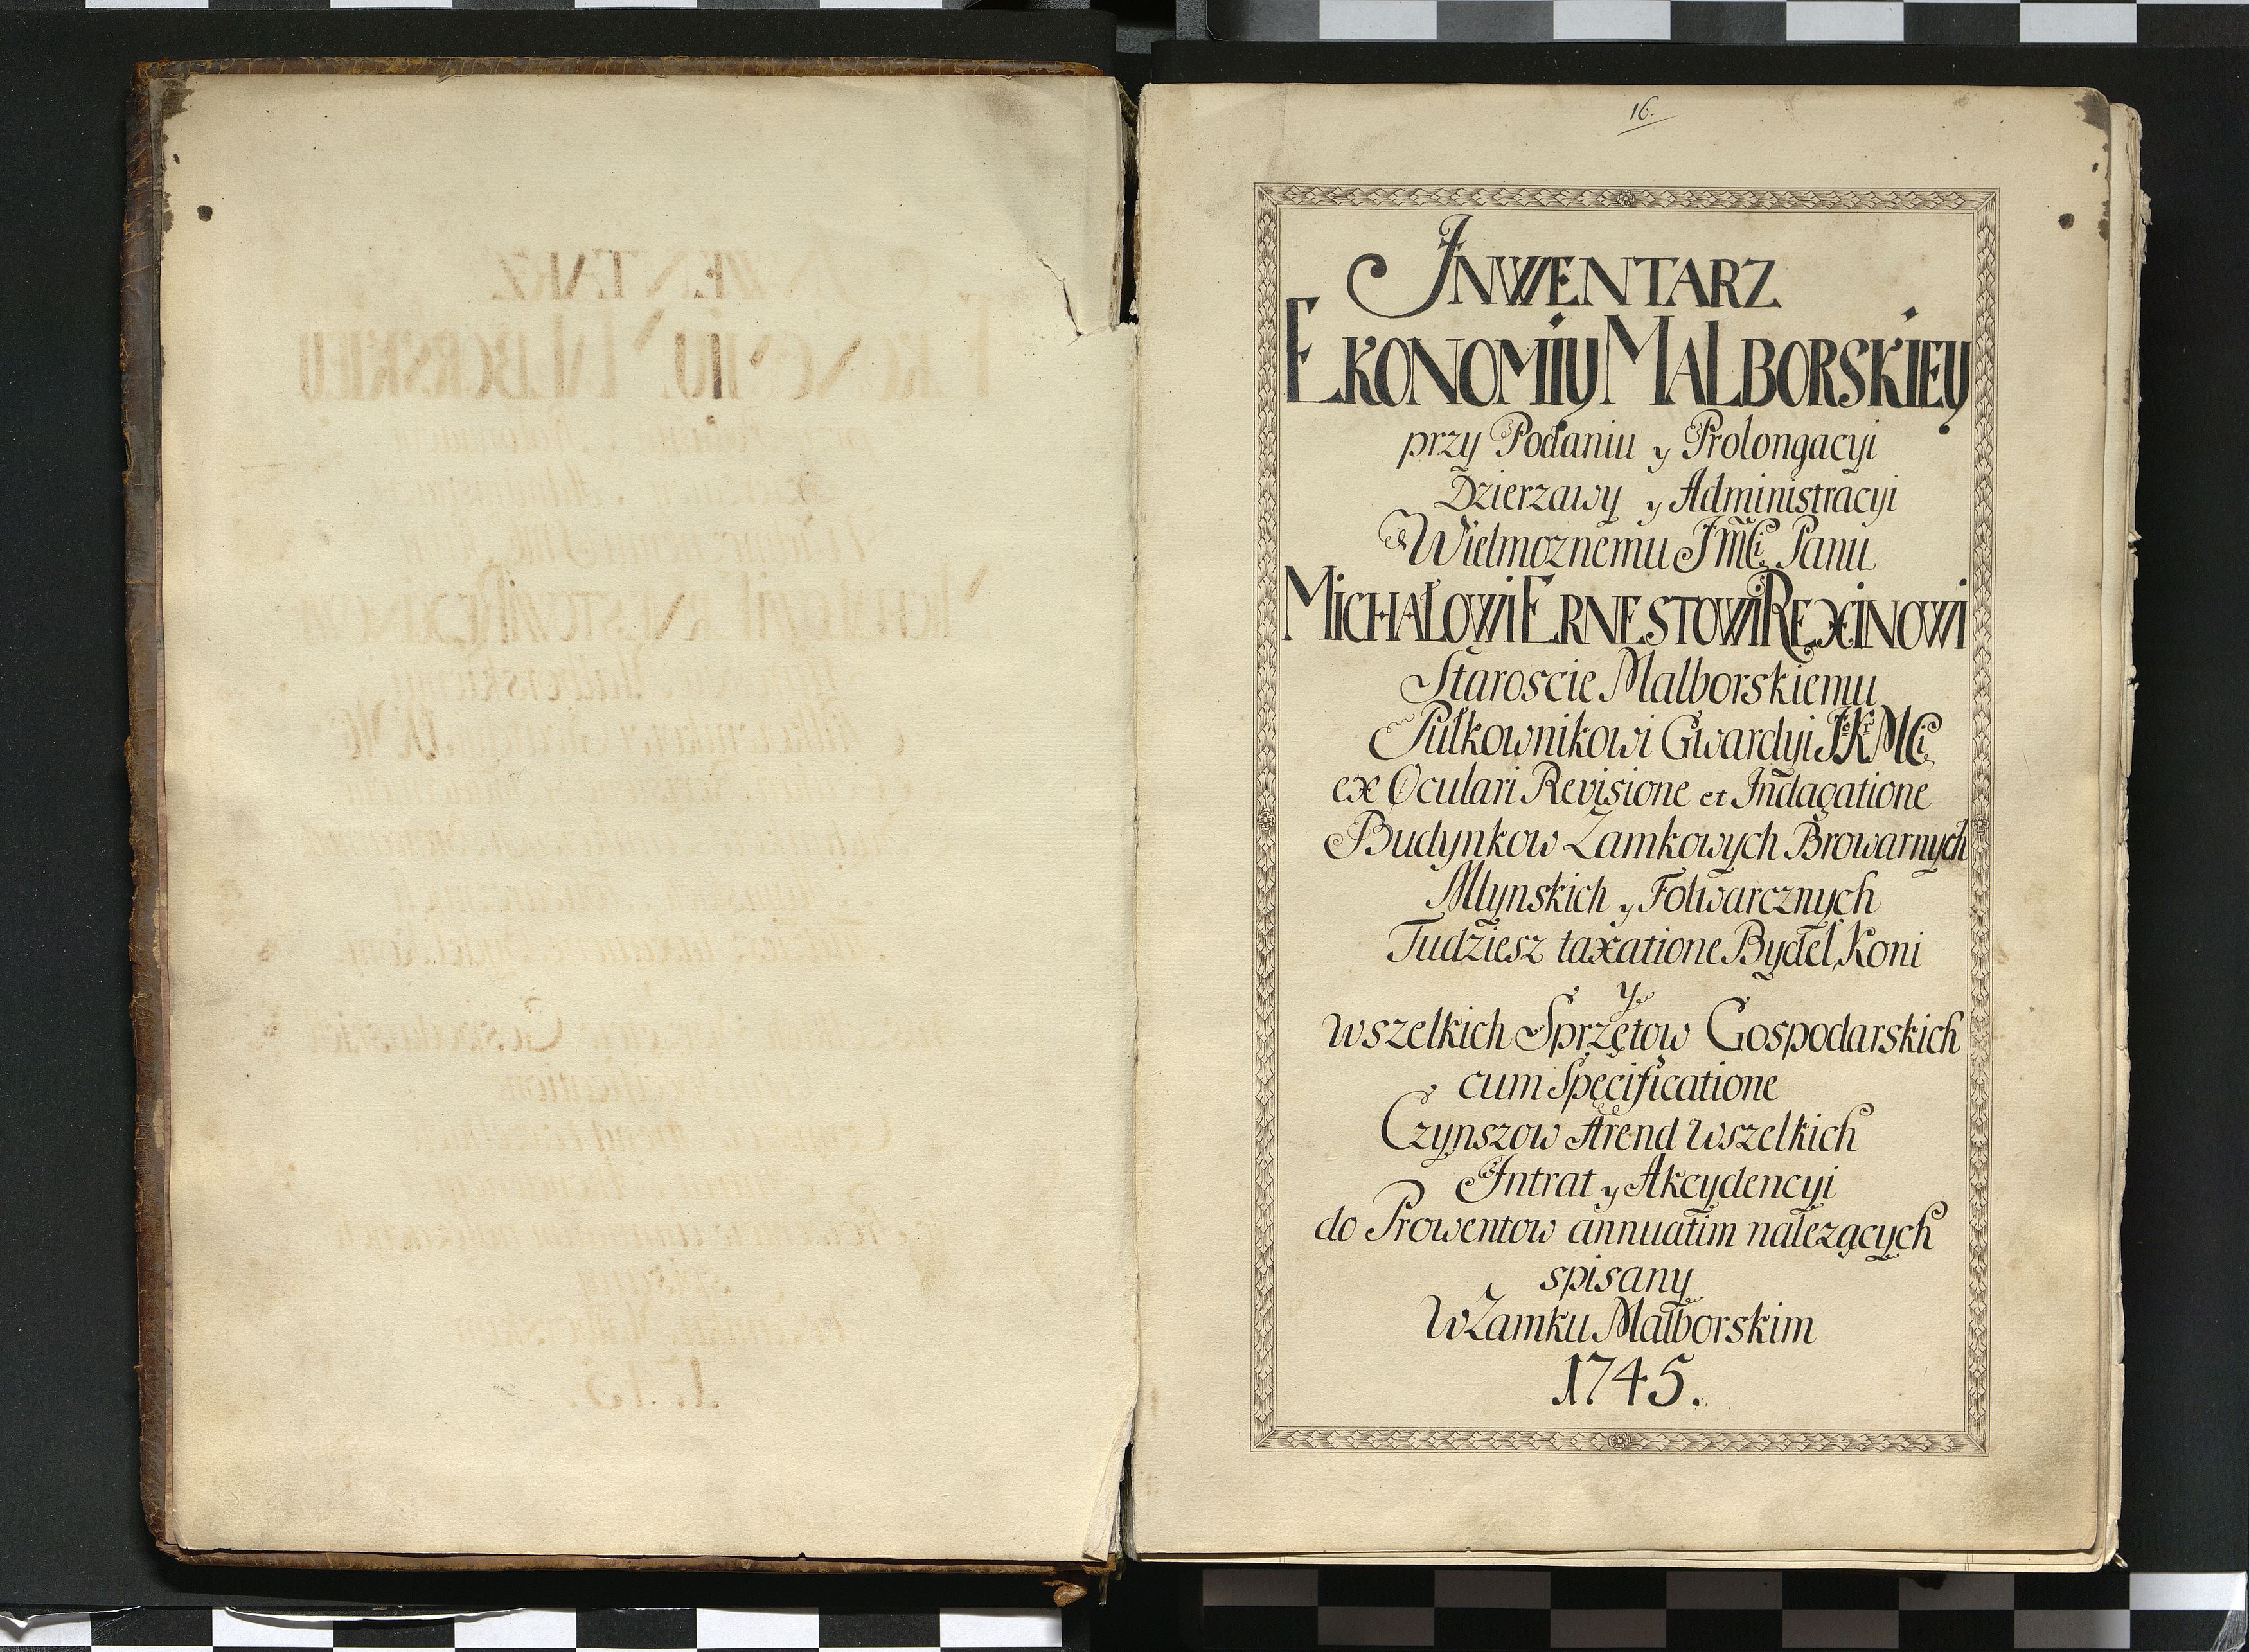 16.
Inwentarz
Ekonomiy Malborskiey
przy Podaniu y Prolongacyi
Dzierzawy y Administracyi
Wielmoznemu JmCi Panu
Michałowi Ernestowi Rexinowi
Staroscie Malborskiemu
Pułkownikowi Gwardyi JKMCi
ex Oculari Revisione et Indagatione
Budynkow Zamkowych Browarnych
Mlynskich y Folwarcznych
Tudziesz taxatione Bydeł, Koni
y
wszelkich Sprzętow Gospodarskich
cum Specificatione
Czynszow Arend wszelkich
Intrat y Akcydencyi
do Prowentow annuatim nalezących
spisany
w Zamku Malborskim
1745.